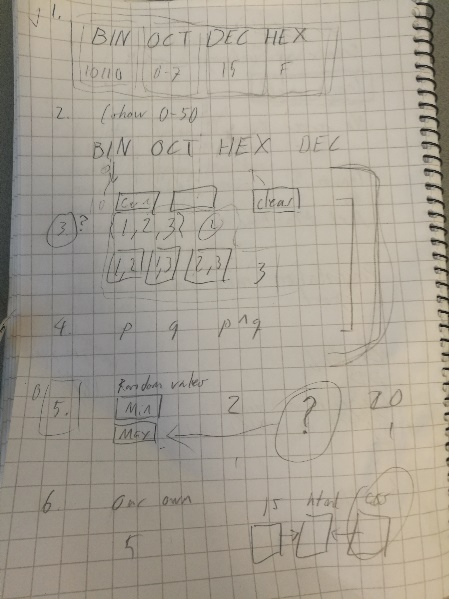 1.
BIN OCT DEC HEX
10110 0-7 15 F
2. (show 0-50
BIN OCT HEX DEC
clear
3. ? {1, 2, 3} 2
1,2 1,3 2,3 3
4. p q p^q
Random values
5. Min 2 ? 20
Max
6. Our own JS html css
5